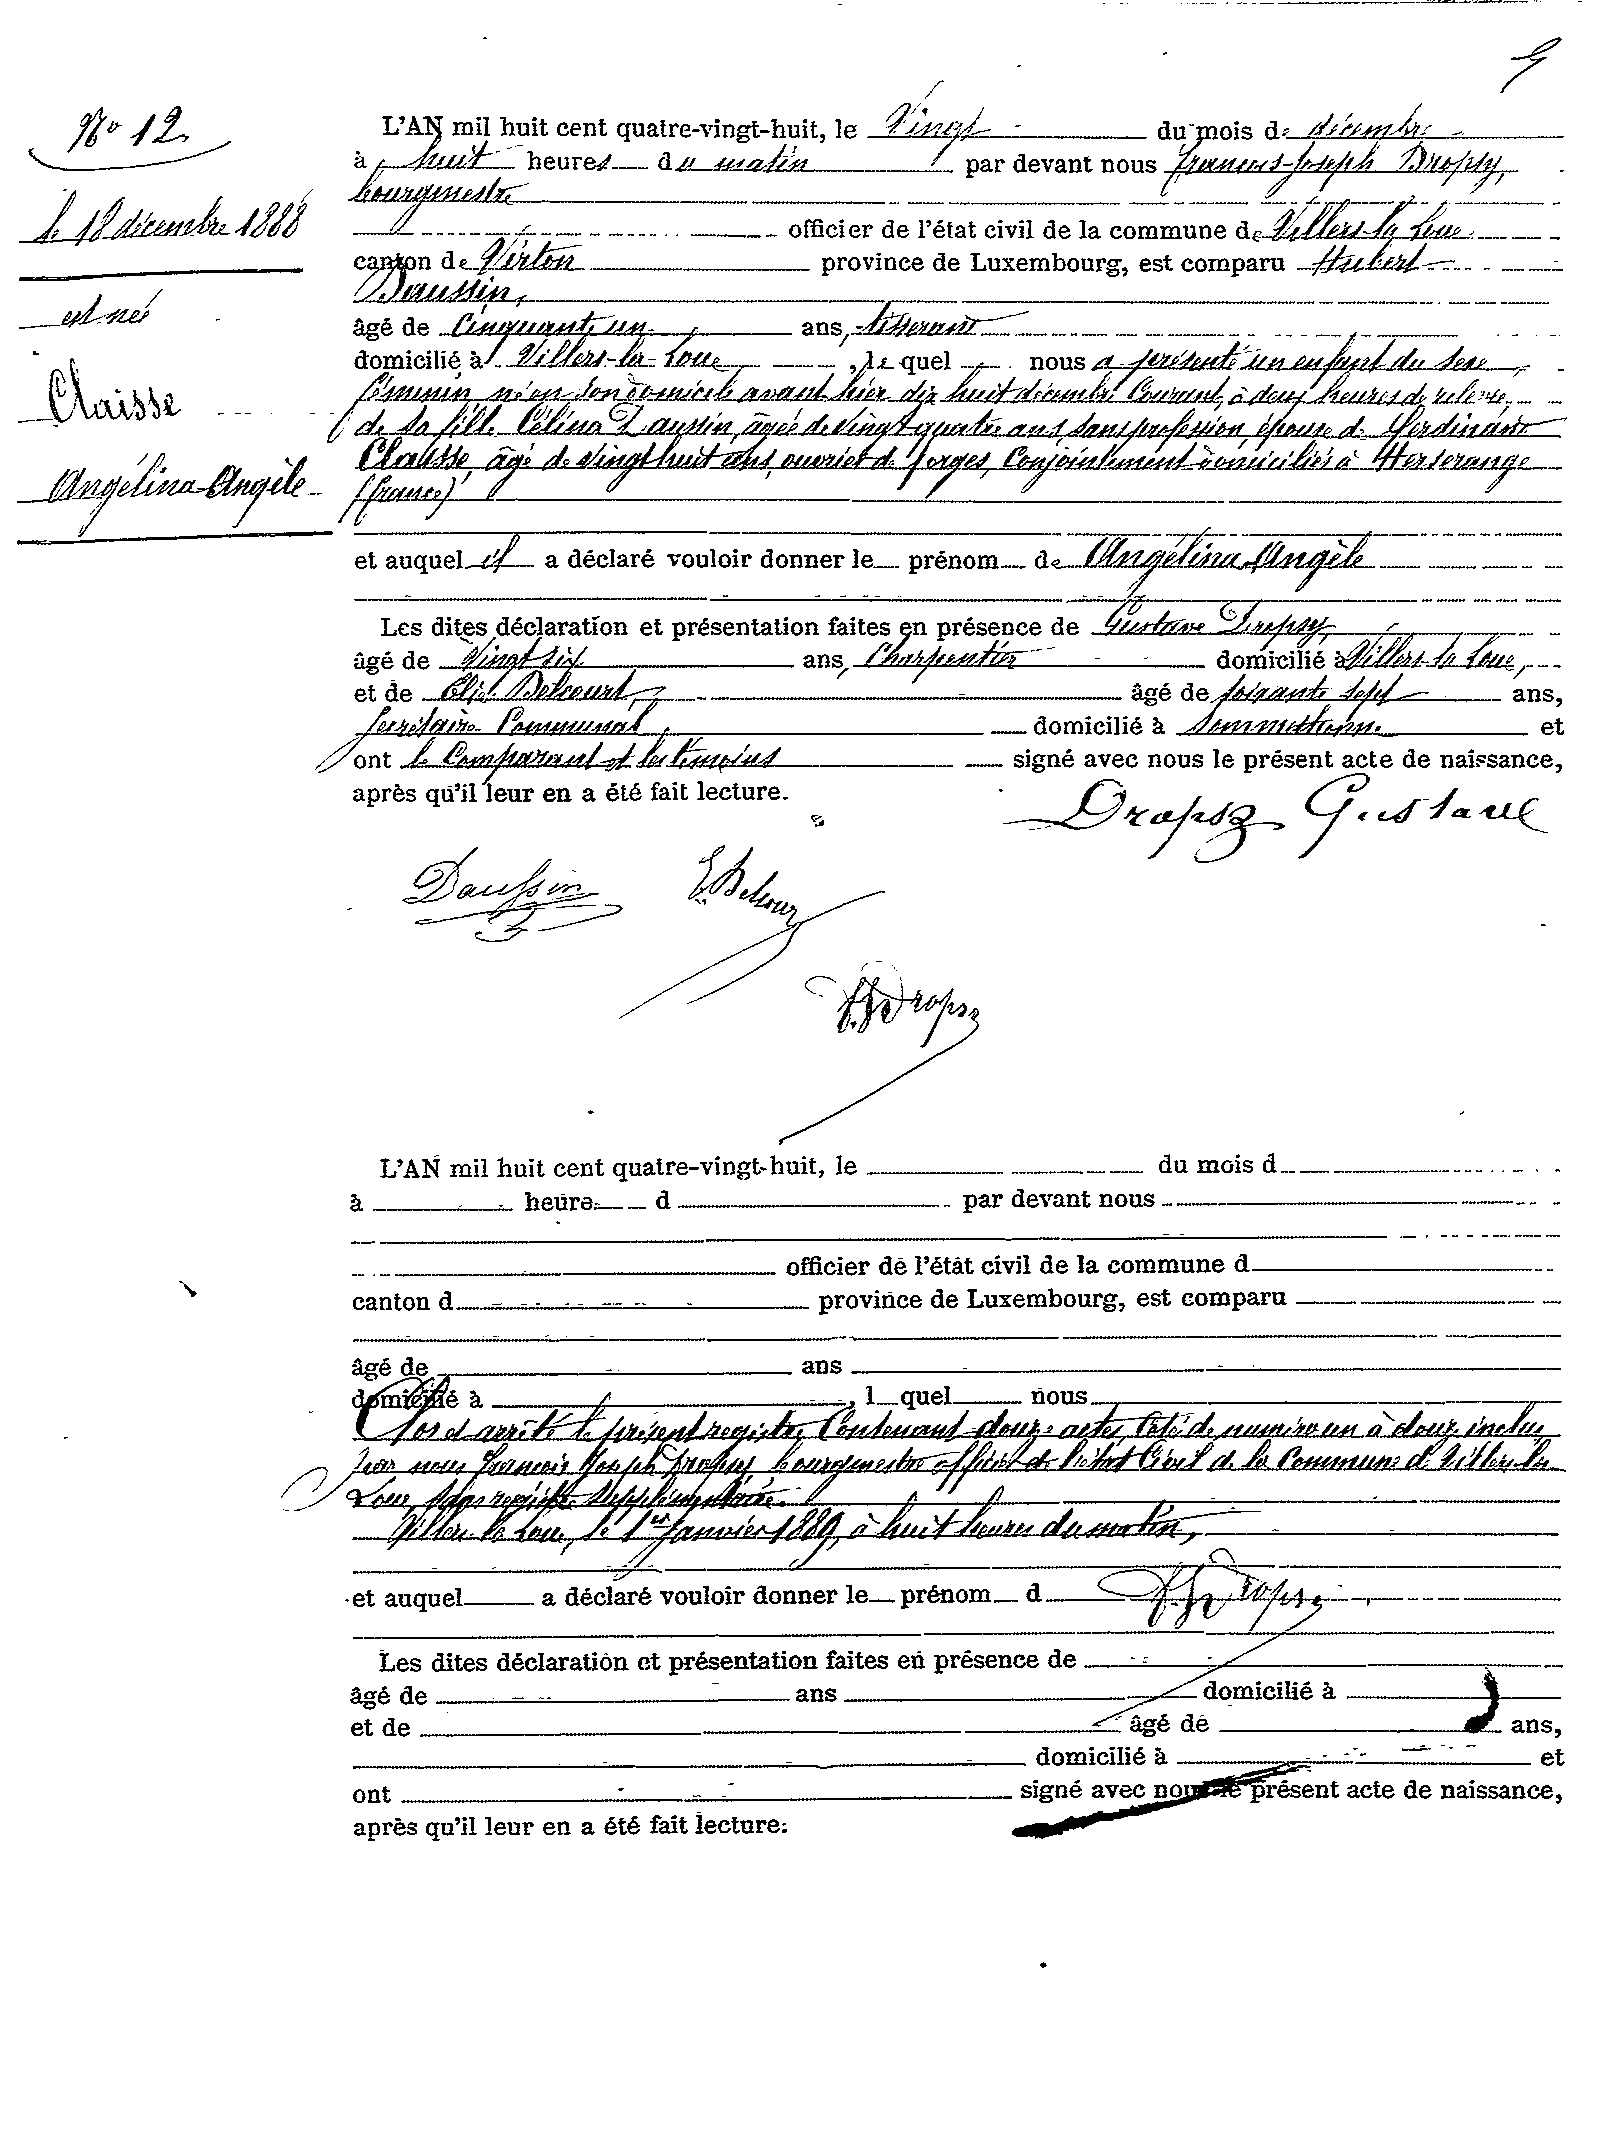 No 12
le 18 décembre 1888
est né
Claisse
Angélina-Angèle
L'AN mil huit cent quatre-vingt-huit, le Vingt du mois de décembre
à huit heures du matin par devant nous François-Joseph Dropsy,
bourgmestre
officier de l'état civil de la commune de Villers-la-Loue
canton de Virton province de Luxembourg, est comparu Hubert
Daussin,
âgé de Cinquante un ans, tisserant
domicilié à Villers-la-Loue, lequel nous a présenté un enfant du sexe
féminin né en son domicile avant hier dix huit décembre courant, à deux heures de relevée,
de sa fille Célina Daussin, âgée de vingt quatre ans, sans profession, épouse de Ferdinand
Claisse, âgé de vingt huit ans, ouvrier de forges, conjointement domiciliés à Herserange
(france)
et auquel il a déclaré vouloir donner le prénom de Angélina Angèle
Les dites déclaration et présentation faites en présence de Gustave Dropsy,
âgé de Vingt six ans, Charpentier domicilié à Villers-la-Loue,
et de Elie Belcourt, âgé de soixante sept ans,
Secrétaire Communal, domicilié à Sommethonne et
ont le Comparant et les témoins signé avec nous le présent acte de naissance,
après qu'il leur en a été fait lecture.
Dropsy Gustave
Daussin
F.J. Dropsy
L'AN mil huit cent quatre-vingt-huit, le du mois d
à heure d par devant nous
officier de l'état civil de la commune d
canton d province de Luxembourg, est comparu
âgé de ans
domicilié à , l quel nous
Clos et arrêté le présent registre Contenant douze actes, Coté de numéro un à douze inclus
par nous François Joseph Dropsy, bourgmestre officier de l'état Civil de la Commune de Villers-la-
Loue, sans registre supplémentaire.
Villers-la-Loue, le 1er Janvier 1889, à huit heures du matin,
et auquel a déclaré vouloir donner le prénom d
F.J. Dropsy
Les dites déclaration et présentation faites en présence de
âgé de ans domicilié à
et de âgé de ans,
domicilié à et
ont signé avec nous le présent acte de naissance,
après qu'il leur en a été fait lecture.